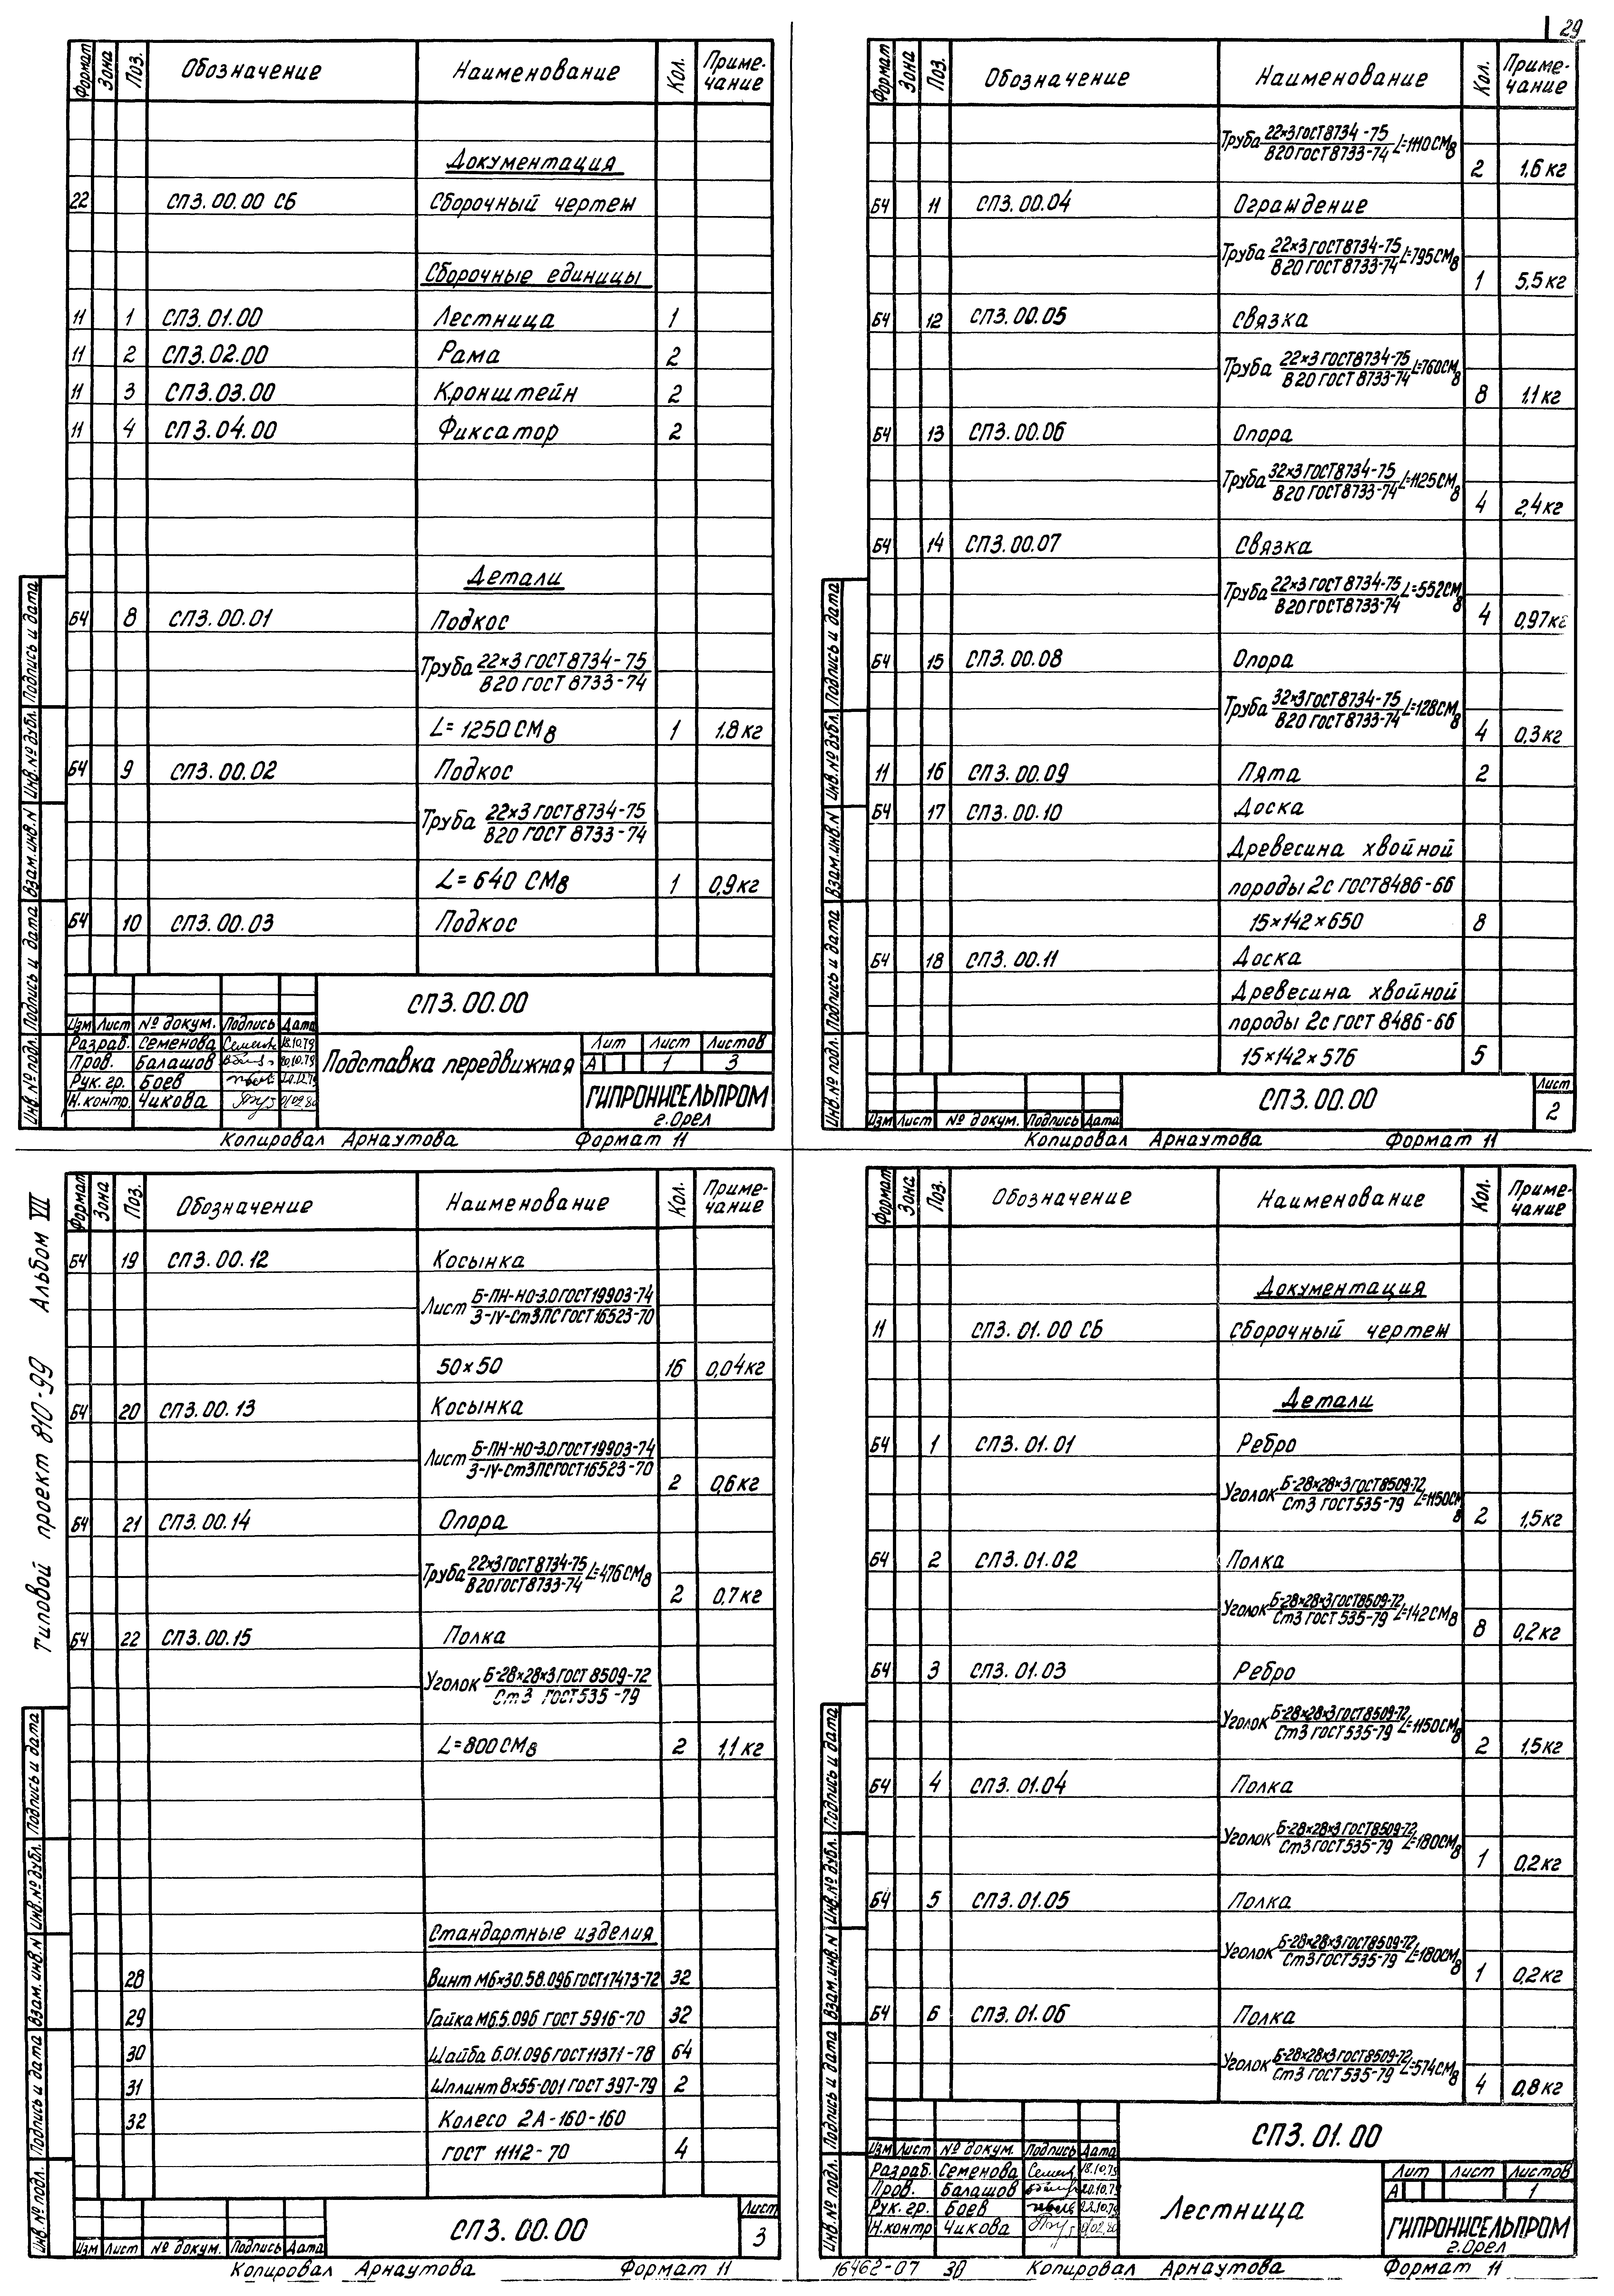 29
Формат Зона Поз. Обозначение Наименование Кол. Приме-
чание
Документация
22 СПЗ.00.00 СБ Сборочный чертеж
Сборочные единицы
11 1 СПЗ.01.00 Лестница 1
11 2 СПЗ.02.00 Рама 2
11 3 СПЗ.03.00 Кронштейн 2
11 4 СПЗ.04.00 Фиксатор 2
Детали
БЧ 8 СПЗ.00.01 Подкос
Труба 22×3 ГОСТ 8734-75
В20 ГОСТ 8733-74
L=1250 СМ8 1 1.8 кг
БЧ 9 СПЗ.00.02 Подкос
Труба 22×3 ГОСТ 8734-75
В20 ГОСТ 8733-74
L=640 СМ8 1 0,9 кг
БЧ 10 СПЗ.00.03 Подкос
СПЗ.00.00
Изм Лист № докум. Подпись Дата
Разраб. Семенова Семен 18.10.79
Пров. Балашов 20.10.79
Рук. гр. Боев
Н.контр. Чикова
Подставка передвижная
Лит Лист Листов
А 1 3
ГИПРОНИСЕЛЬПРОМ
г.Орел
Инв.№ подл. Подпись и дата Взам.инв.N Инв.№ дубл. Подпись и дата
Копировал Арнаутова Формат 11
Формат Зона Поз. Обозначение Наименование Кол. Приме-
чание
Труба 22×3 ГОСТ 8734-75 L=1110 СМ8
В20 ГОСТ 8733-74
2 1,6 кг
БЧ 11 СПЗ.00.04 Ограждение
Труба 22×3 ГОСТ 8734-75 L=795 СМ8
В20 ГОСТ 8733-74
1 5,5 кг
БЧ 12 СПЗ.00.05 Связка
Труба 22×3 ГОСТ 8734-75 L=760 СМ8
В20 ГОСТ 8733-74
8 1.1 кг
БЧ 13 СПЗ.00.06 Опора
Труба 32×3 ГОСТ 8734-75 L=1125 СМ8
В20 ГОСТ 8733-74
4 2,4 кг
БЧ 14 СПЗ.00.07 Связка
Труба 22×3 ГОСТ 8734-75 L=552 СМ8
В20 ГОСТ 8733-74
4 0,97 кг
БЧ 15 СПЗ.00.08 Опора
Труба 32×3 ГОСТ 8734-75 L=128 СМ8
В20 ГОСТ 8733-74
4 0,3 кг
11 16 СПЗ.00.09 Пята 2
БЧ 17 СПЗ.00.10 Доска
Древесина хвойной
породы 2с ГОСТ 8486-66
15×142×650 8
БЧ 18 СПЗ.00.11 Доска
Древесина хвойной
породы 2с ГОСТ 8486-66
15×142×576 5
СПЗ.00.00
Лист
2
Изм Лист № докум. Подпись Дата
Инв.№ подл. Подпись и дата Взам.инв.N Инв.№ дубл. Подпись и дата
Копировал Арнаутова Формат 11
Типовой проект 810-99 Альбом VII
Формат Зона Поз. Обозначение Наименование Кол. Приме-
чание
БЧ 19 СПЗ.00.12 Косынка
Лист Б-ПН-НО-3.0 ГОСТ 19903-74
3-IV-Ст3ПС ГОСТ 16523-70
50×50 16 0,04 кг
БЧ 20 СПЗ.00.13 Косынка
Лист Б-ПН-НО-3.0 ГОСТ 19903-74
3-IV-Ст3ПС ГОСТ 16523-70
2 0,6 кг
БЧ 21 СПЗ.00.14 Опора
Труба 22×3 ГОСТ 8734-75 L=476 СМ8
В20 ГОСТ 8733-74
2 0,7 кг
БЧ 22 СПЗ.00.15 Полка
Уголок Б-28×28×3 ГОСТ 8509-72
Ст3 ГОСТ 535-79
L=800 СМ8 2 1,1 кг
Стандартные изделия
28 Винт М6×30.58.096 ГОСТ 17473-72 32
29 Гайка М6.5.096 ГОСТ 5916-70 32
30 Шайба 6.01.096 ГОСТ 11371-78 64
31 Шплинт 8×55-001 ГОСТ 397-79 2
32 Колесо 2А-160-160
ГОСТ 11112-70 4
СПЗ.00.00
Лист
3
Изм Лист № докум. Подпись Дата
Инв.№ подл. Подпись и дата Взам.инв.N Инв.№ дубл. Подпись и дата
Копировал Арнаутова Формат 11
Формат Зона Поз. Обозначение Наименование Кол. Приме-
чание
Документация
11 СПЗ.01.00 СБ Сборочный чертеж
Детали
БЧ 1 СПЗ.01.01 Ребро
Уголок Б-28×28×3 ГОСТ 8509-72 L=1150 СМ8
Ст3 ГОСТ 535-79
2 1,5 кг
БЧ 2 СПЗ.01.02 Полка
Уголок Б-28×28×3 ГОСТ 8509-72 L=142 СМ8
Ст3 ГОСТ 535-79
8 0,2 кг
БЧ 3 СПЗ.01.03 Ребро
Уголок Б-28×28×3 ГОСТ 8509-72 L=1150 СМ8
Ст3 ГОСТ 535-79
2 1,5 кг
БЧ 4 СПЗ.01.04 Полка
Уголок Б-28×28×3 ГОСТ 8509-72 L=180 СМ8
Ст3 ГОСТ 535-79
1 0.2 кг
БЧ 5 СПЗ.01.05 Полка
Уголок Б-28×28×3 ГОСТ 8509-72 L=180 СМ8
Ст3 ГОСТ 535-79
1 0,2 кг
БЧ 6 СПЗ.01.06 Полка
Уголок Б-28×28×3 ГОСТ 8509-72 L=574 СМ8
Ст3 ГОСТ 535-79
4 0,8 кг
СПЗ.01.00
Изм Лист № докум. Подпись Дата
Разраб. Семенова Семен 18.10.79
Пров. Балашов 20.10.79
Рук. гр. Боев 22.10.79
Н.контр Чикова
Лестница
Лит Лист Листов
А 1
ГИПРОНИСЕЛЬПРОМ
г.Орел
Инв.№ подл. Подпись и дата Взам.инв.N Инв.№ дубл. Подпись и дата
16462-07 30 Копировал Арнаутова Формат 11